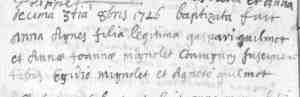 decima 3tia 8bris 1746 baptizata fuit
anna Agnes filia legitima gaspari guilmot
et Annæ Joannæ mignolet Conjugum
Egidio mignolet et Agnete guilmot